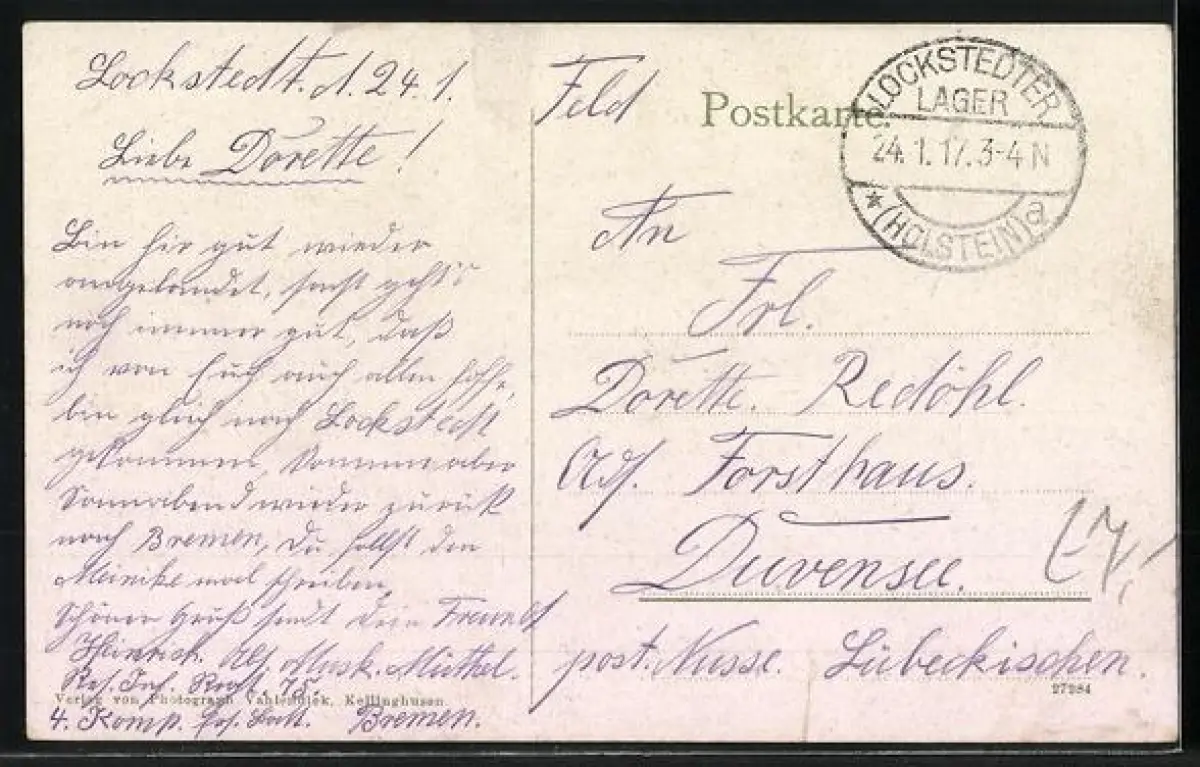 Lockstedt. d. 24.1.
Liebe Dorette!
Bin hir gut wieder
angelandet, sonst geht's
noch immer gut, daß
ich von Euch auch allen hoffe,
bin gleich nach Lockstedt
gekommen, komme aber
Sonnabend wieder zurück
nach Bremen, Du sollst den
Meinike mal schreiben,
Schönen Gruß sendt dein Freund
Heinrich. Musk. Müthel.
Inf. Regt. 75.
4. Komp. Bremen.
Verlag von Photograph Kellinghusen
Feld Postkarte.
LOCKSTEDTER
LAGER
24.1.17.3-4 N
* (HOLSTEIN) a
An
Frl.
Dorette. Redöhl.
Forsthaus.
Duvensee.
post. Nusse. Lübeckischen.
27284